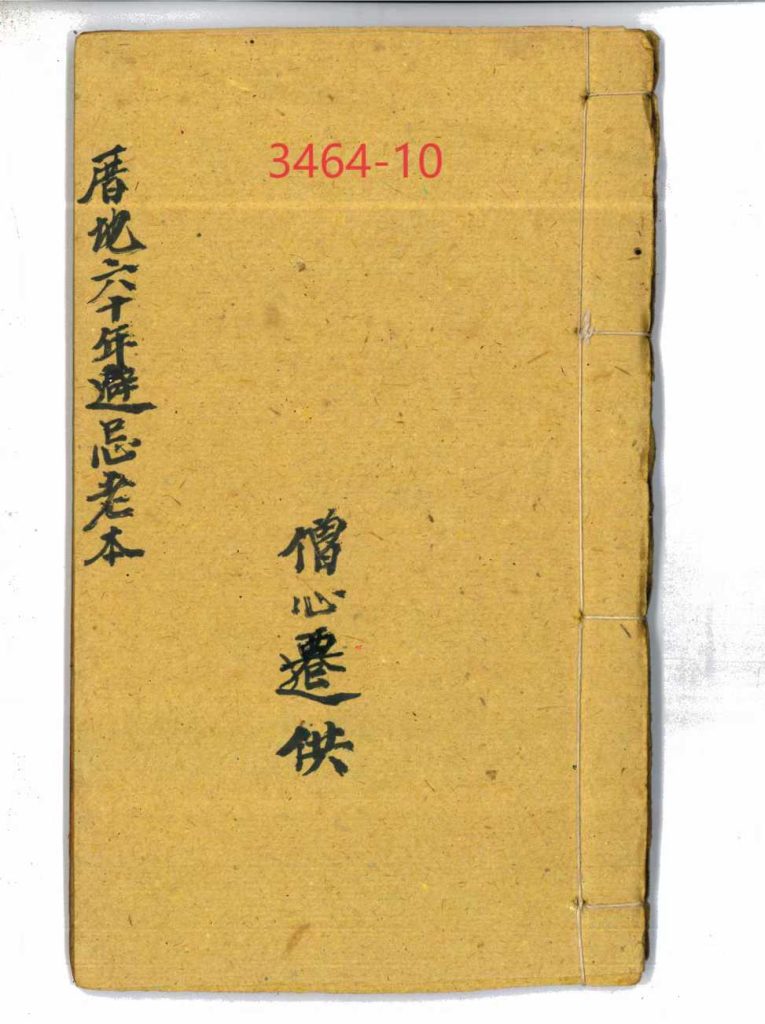 3464-10
厝地六十年避忌老本
僧心遷供